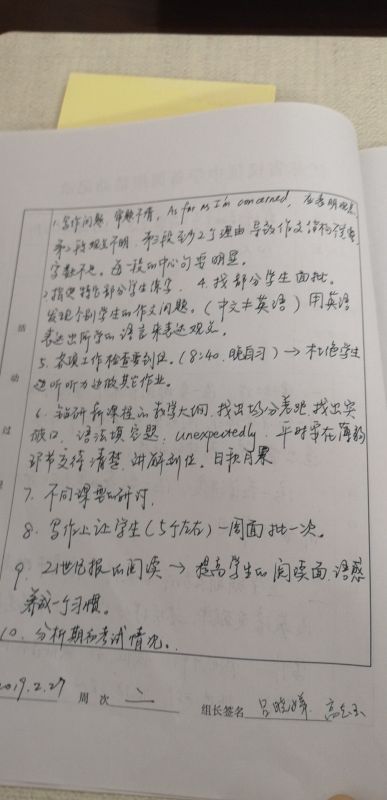 1. 写作问题, 审题不清, As far as I'm concerned, 应表明观点
第二段观点不明, 第三段至少2个理由 导致作文结构不完整,
字数不足。每一段的中心句要明显。
2. 指定特色部分学生练字, 4. 找部分学生面批。
发现个别学生的作文问题。(中文≠英语) 用英语
表达出所学的语言来表达观点。
5. 各项工作检查要到位。(8:40. 晚自习) → 杜绝学生
边听听力边做其它作业。
6. 钻研新课程的教学大纲, 找出场分差距, 找出突
破口, 语法填空题, unexpectedly, 平时要在薄弱
环节交待清楚, 讲解到位。日积月累
7. 不同课型的研讨.
8. 写作上让学生(5个左右)一周面批一次。
9. 21世纪报的阅读 → 提高学生的阅读面, 语感
养成一个习惯。
10. 分析期初考试情况。
活动过
2019.2.27 周次 二 组长签名 吕晓婵